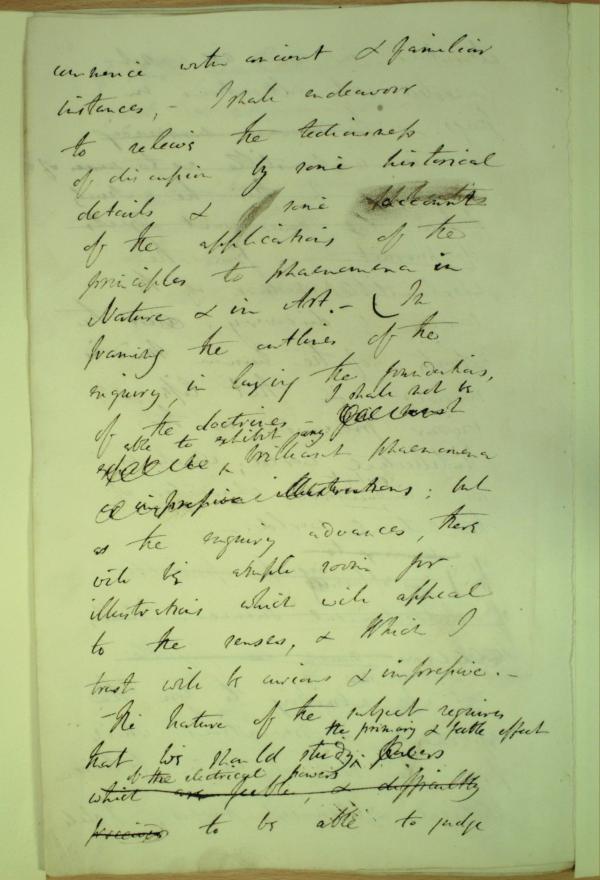 commence with ancient & familiar
instances, – I shall endeavour
to relieve the tediousness
of discussion by some historical
details & some accounts
of the applications of the
principles to phaenomena in
Nature & in Art. – ( In
framing the outlines of the
enquiry, in laying the foundations,
I shall not be
of the doctrines –
able to exhibit any
brilliant phaenomena
or impressive illustrations; but
as the enquiry advances, there
will be ample room for
illustrations which will appeal
to the senses, & which I
trust will be curious & impressive. –
The nature of the subject requires
the primary & feeble effect
that we should study
of the electrical powers
which are feeble, & difficultly
to be able to judge